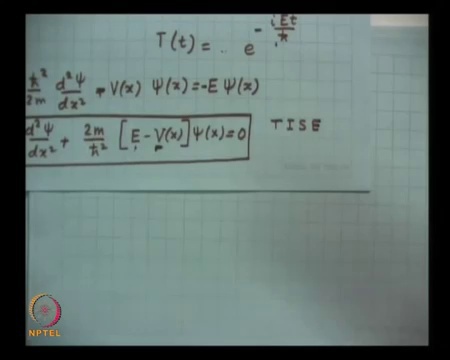 T(t) = . e^{-iEt/ħ}
ħ²/2m d²Ψ/dx² - V(x) Ψ(x) = -E Ψ(x)
d²Ψ/dx² + 2m/ħ² [E - V(x)] Ψ(x) = 0 TISE
NPTEL